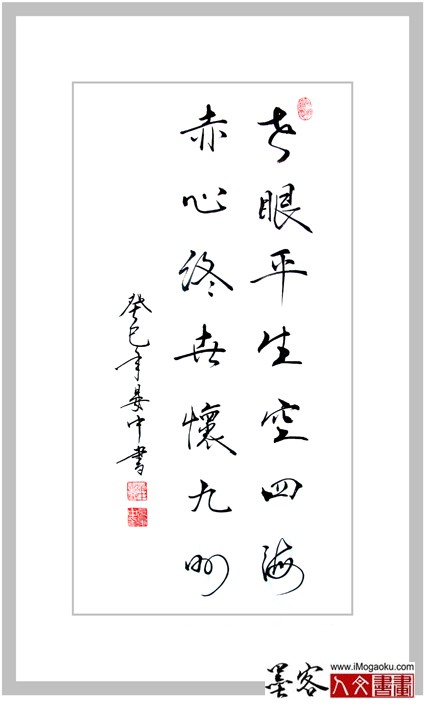 老眼平生空四海
赤心終世懷九州
癸巳年晏中書
墨客
www.iMogaoku.com
人文書畫